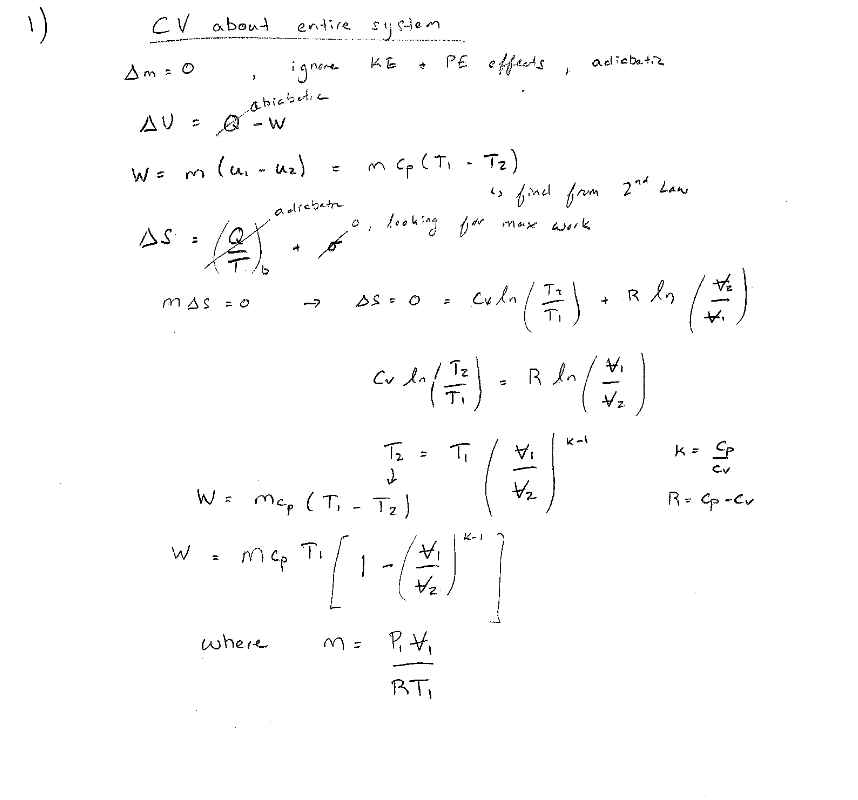 1) CV about entire system
Δm = 0 , ignore KE + PE effects , adiabatic
abiabatic
ΔU = Q - W
W = m (u₁ - u₂) = m Cp (T₁ - T₂)
↳ find from 2nd Law
adiabatic
ΔS = (Q/T)b + σ 0, looking for max work
mΔs = 0 → Δs = 0 = Cv ln (T₂/T₁) + R ln (V₂/V₁)
Cv ln (T₂/T₁) = R ln (V₁/V₂)
T₂ = T₁ (V₁/V₂)^(k-1) K = Cp/Cv
↓
W = mcp (T₁ - T₂) R = Cp - Cv
W = m Cp T₁ [1 - (V₁/V₂)^(k-1)]
where m = P₁ V₁ / RT₁